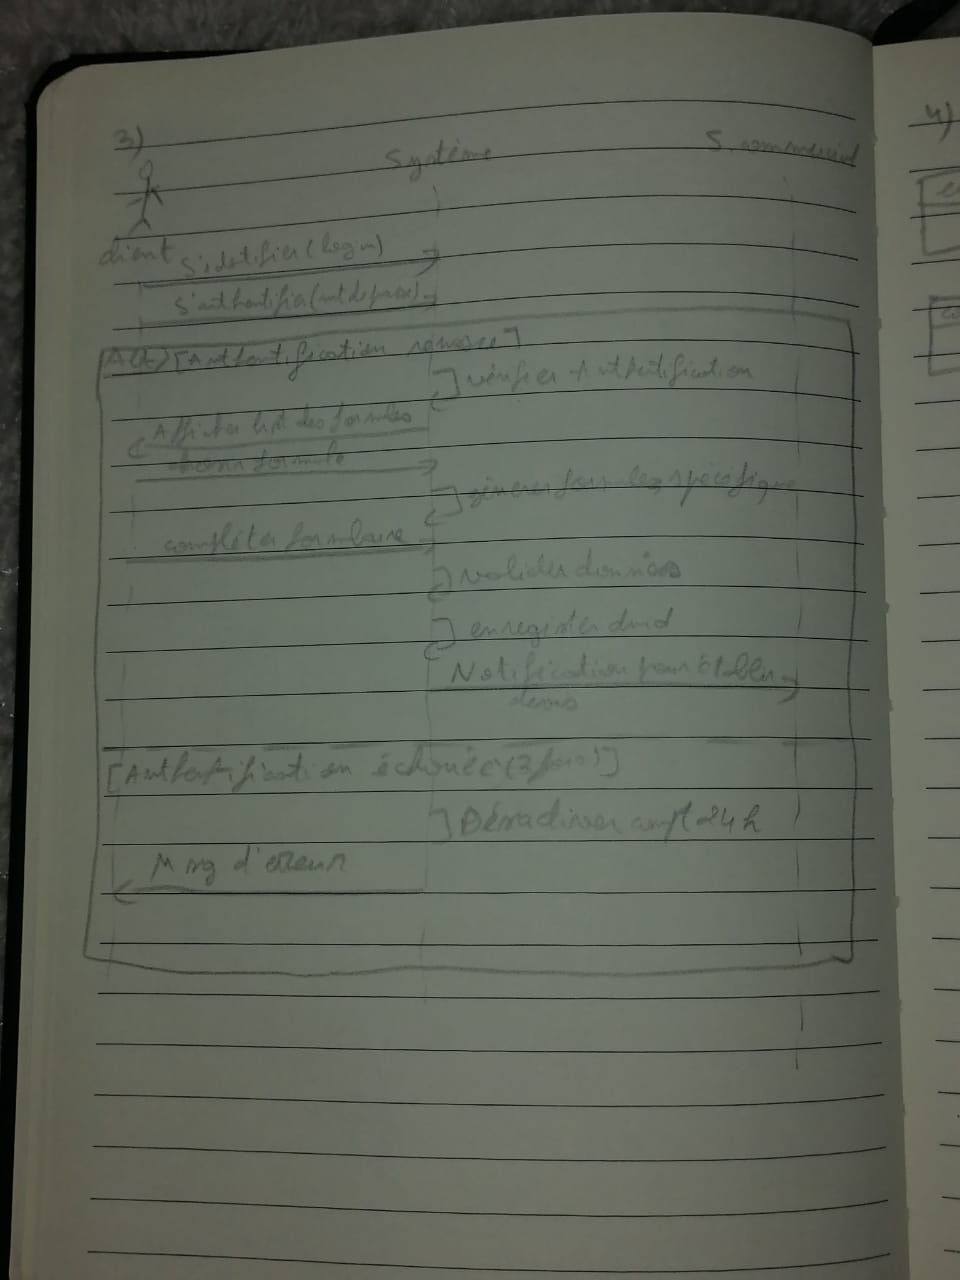 3)
Système
S. commercial
client
S'identifier (login)
S'authentifier (mot de passe)
Alt [Authentification réussie]
vérifier Authentification
Afficher list des formules
choisir formule
générer formules spécifique
compléter formulaire
valider données
enregister dmd
Notification pour établir
devis
[Authentification échouée (3 fois)]
Désactiver compt 24h
Msg d'erreur
4)